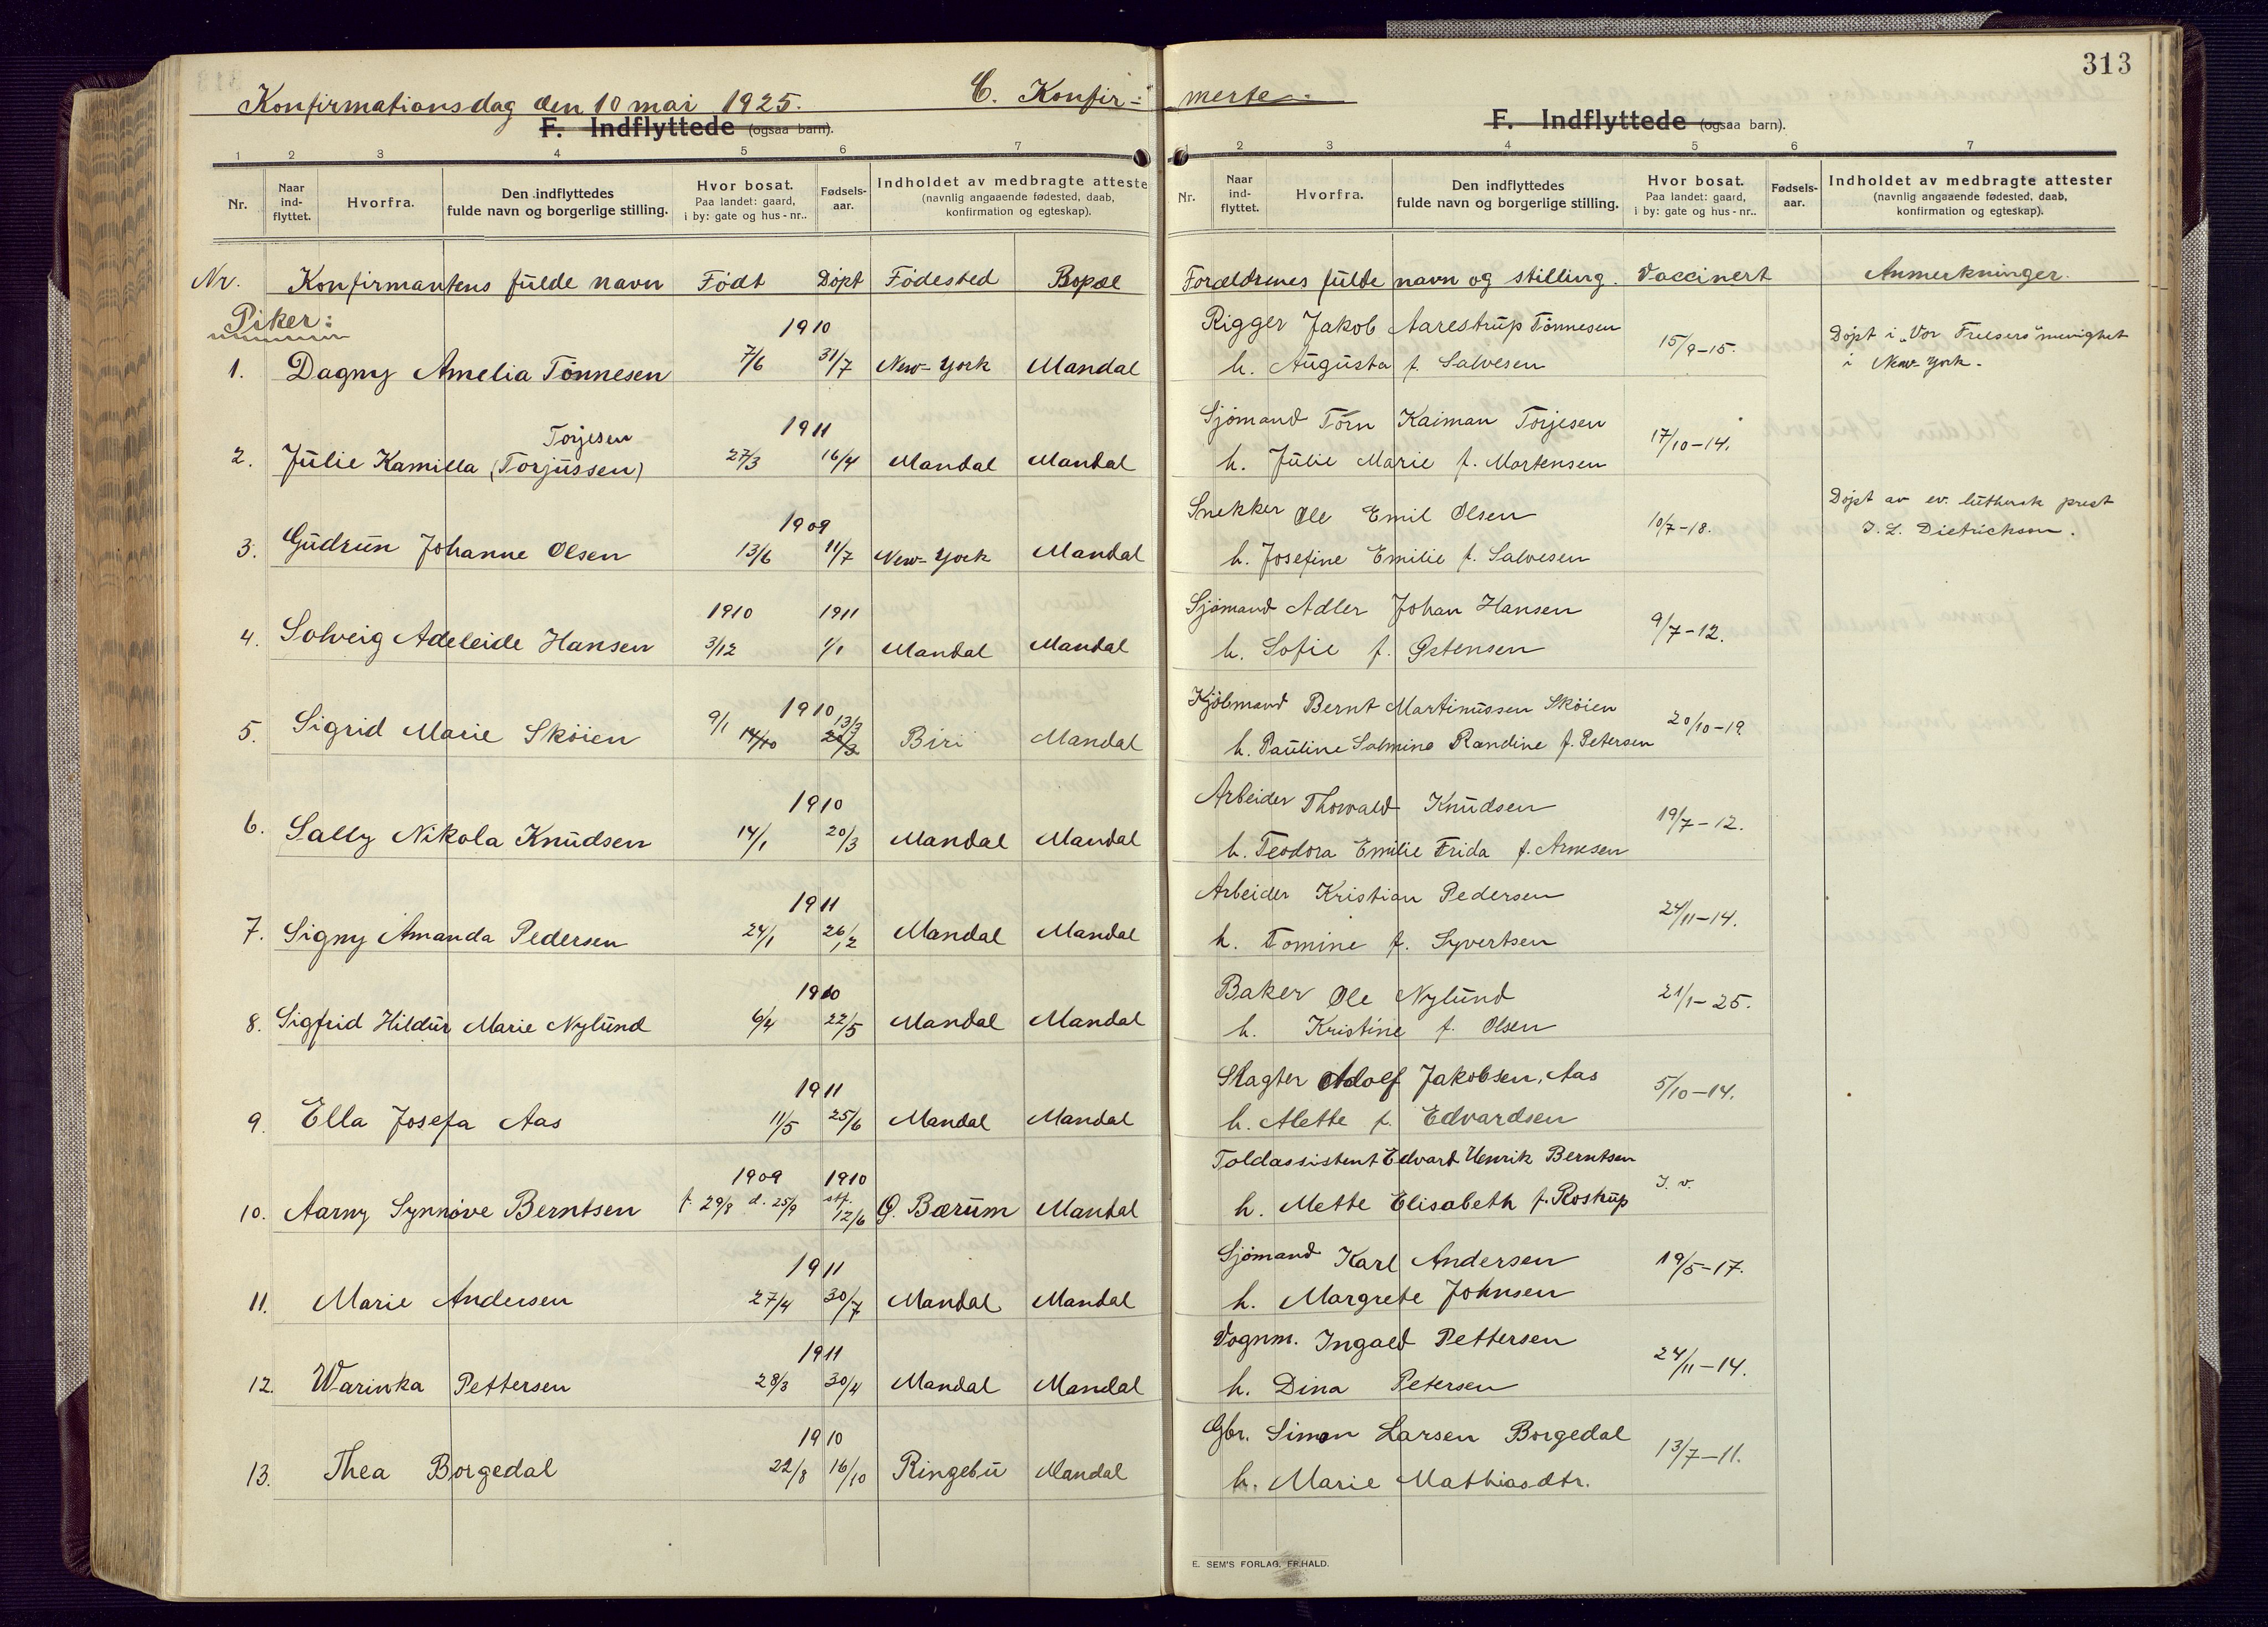 313
Konfirmationsdag den 10 mai 1925. C. Konfir= merte.
F. Indflyttede (ogsaa barn).
1 2 3 4 5 6 7
Nr. Naar ind-flyttet. Hvorfra. Den indflyttedes fulde navn og borgerlige stilling. Hvor bosat. Paa landet: gaard, i by: gate og hus-nr.. Fødsels-aar. Indholdet av medbragte atteste (navnlig angaaende fødested, daab, konfirmation og egteskap).
F. Indflyttede (ogsaa barn).
1 2 3 4 5 6 7
Nr. Naar ind-flyttet. Hvorfra. Den indflyttedes fulde navn og borgerlige stilling. Hvor bosat. Paa landet: gaard, i by: gate og hus-nr.. Fødsels-aar. Indholdet av medbragte attester (navnlig angaaende fødested, daab, konfirmation og egteskap).
Nr. Konfirmantens fulde navn Født Døpt Fødested Bopæl Forældrenes fulde navn og stilling. Vaccinert Anmerkninger.
Piker:
1910 Rigger Jakob Aarestrup Tönnesen 15/9-15. Døpt i "Vor Frelsers" menighet
1. Dagny Amelia Tönnesen 7/6 31/7 New-York Mandal h. Augusta f. Salvesen i New-York.
Torjesen 1911 Sjömand Törn Kaiman Torjesen 17/10-14.
2. Julie Kamilla (Torjussen) 27/3 16/4 Mandal Mandal h. Julie Marie f. Mortensen
1909 Snekker Ole Emil Olsen 10/7-18. Døpt av ev. luthersk prest
3. Gudrun Johanne Olsen 13/6 11/7 New-York Mandal h. Josefine Emilie f. Salvesen J. L. Dietrichson.
1910 1911 Sjömand Adler Johan Hansen 9/7-12.
4. Solveig Adeleide Hansen 3/12 1/1 Mandal Mandal h. Sofie f. Østensen
9/1 1910 13/3 Kjøbmand Bernt Martinussen Sköien 20/10-19
5. Sigrid Marie Sköien 14/10 Biri Mandal h. Pauline Salmine Randine f. Petersen
1910 Arbeider Thorvald Knudsen 19/7-12.
6. Sally Nikola Knudsen 14/1 20/3 Mandal Mandal h. Teodora Emilie Frida f. Arnesen
1911 Arbeider Kristian Pedersen 24/11-14.
7. Signy Amanda Pedersen 24/1 26/12 Mandal Mandal h. Tomine f. Syvertsen
1910 Baker Ole Nylund 21/1-25.
8. Sigfrid Hildur Marie Nylund 6/4 22/5 Mandal Mandal h. Kristine f. Olsen
1911 Slagter Adolf Jakobsen, Aas 5/10-14.
9. Ella Josefa Aas 11/5 25/6 Mandal Mandal h. Mette f. Edvardsen
1909 1910 Toldassistent Edvard Henrik Berntsen I. v.
10. Aarny Synnöve Berntsen f. 29/8 d. 25/9 stf. 12/6 Ø. Bærum Mandal h. Mette Elisabeth f. Rostrup
1911 Sjömand Karl Andersen 19/5-17.
11. Marie Andersen 27/4 30/7 Mandal Mandal h. Margrete Johnsen
1911 Vognm. Ingald Pettersen 24/11-14.
12. Warinka Pettersen 28/3 30/4 Mandal Mandal h. Dina Petersen
1910 Gbr. Simon Larsen Borgedal 13/7-11.
13. Thea Borgedal 22/8 16/10 Ringebu Mandal h. Marie Mathiasdtr.
E. SEM'S FORLAG, FR.HALD.